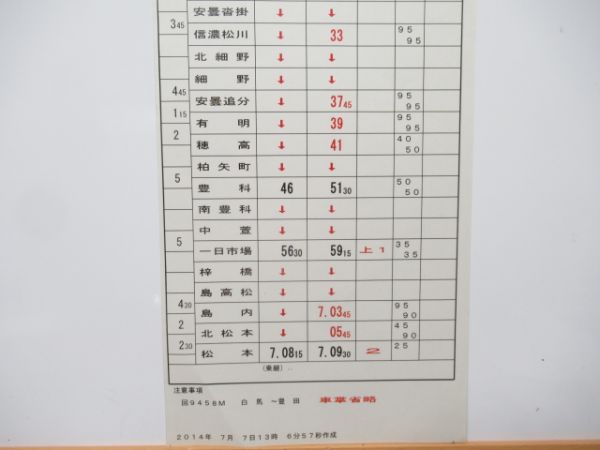 安曇沓掛 ↓ ↓
3 45
信濃松川 ↓ 33 95 95
北細野 ↓ ↓
細野 ↓ ↓
4 45
安曇追分 ↓ 37 45 95 95
1 15
有明 ↓ 39 95 95
2
穂高 ↓ 41 40 50
柏矢町 ↓ ↓
5
豊科 46 51 30 50 50
南豊科 ↓ ↓
中萱 ↓ ↓
5
一日市場 56 30 59 15 上1 35 35
梓橋 ↓ ↓
島高松 ↓ ↓
4 30
島内 ↓ 7.03 45 95 90
2
北松本 ↓ 05 45 45 90
2 30
松本 7.08 15 7.09 30 2 25
注意事項
回9458M 白馬 ~豊田 車掌省略
2014年 7月 7日13時 6分57秒作成